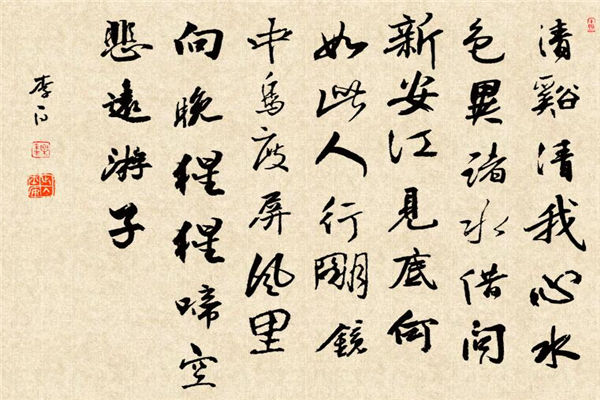 清谿清我心水
色異諸水借问
新安江見底何
如此人行明鏡
中鸟度屏风里
向晚猩猩啼空
悲遠游子
李白